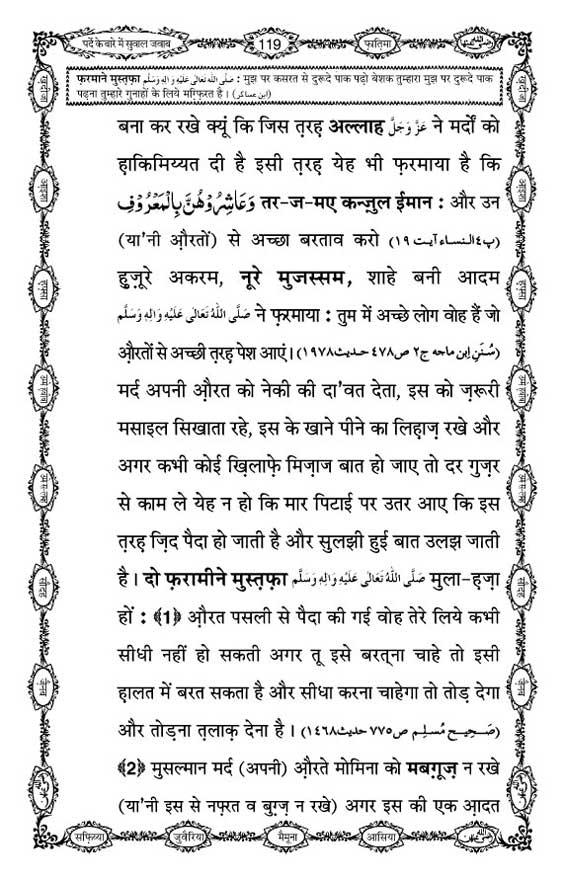 पर्दे के बारे में सुवाल जवाब 119 फ़ातिमा
फ़रमाने मुस्तफ़ा صَلَّى اللّٰهُ تَعَالٰى عَلَيْهِ وَاٰلِهٖ وَسَلَّم : मुझ पर कसरत से दुरूदे पाक पढ़ो बेशक तुम्हारा मुझ पर दुरूदे पाक
पढ़ना तुम्हारे गुनाहों के लिये मग़्फ़िरत है। (ابن عساکر)
बना कर रखे क्यूं कि जिस त़रह़ अल्लाह عَزَّوَجَلَّ ने मर्दों को
ह़ाकिमिय्यत दी है इसी त़रह़ येह भी फ़रमाया है कि
وَعَاشِرُوْهُنَّ بِالْمَعْرُوْفِ तर-ज-मए कन्ज़ुल ईमान : और उन
(या'नी औ़रतों) से अच्छा बरताव करो (پ٤ النساء آیت ١٩)
हुज़ूरे अकरम, नूरे मुजस्सम, शाहे बनी आदम
صَلَّى اللّٰهُ تَعَالٰى عَلَيْهِ وَاٰلِهٖ وَسَلَّم ने फ़रमाया : तुम में अच्छे लोग वोह हैं जो
औ़रतों से अच्छी त़रह़ पेश आएं। (سُنَنِ اِبن ماجه ج٢ ص٤٧٨ حدیث١٩٧٨)
मर्द अपनी औ़रत को नेकी की दा'वत देता, इस को ज़रूरी
मसाइल सिखाता रहे, इस के खाने पीने का लिह़ाज़ रखे और
अगर कभी कोई ख़िलाफ़े मिज़ाज बात हो जाए तो दर गुज़र
से काम ले येह न हो कि मार पिटाई पर उतर आए कि इस
त़रह़ ज़िद पैदा हो जाती है और सुलझी हुई बात उलझ जाती
है। दो फ़रामीने मुस्त़फ़ा صَلَّى اللّٰهُ تَعَالٰى عَلَيْهِ وَاٰلِهٖ وَسَلَّم मुला-ह़ज़ा
हों : ﴾1﴿ औ़रत पसली से पैदा की गई वोह तेरे लिये कभी
सीधी नहीं हो सकती अगर तू इसे बरत्ना चाहे तो इसी
ह़ालत में बरत सकता है और सीधा करना चाहेगा तो तोड़ देगा
और तोड़ना त़लाक़ देना है। (صَحِیح مُسلِم ص٧٧٥ حدیث١٤٦٨)
﴾2﴿ मुसल्मान मर्द (अपनी) औ़रते मोमिना को मबग़ूज़ न रखे
(या'नी इस से नफ़्रत व बुग़्ज़ न रखे) अगर इस की एक आ़दत
सफ़िय्या जुवैरिया मैमूना आसिया